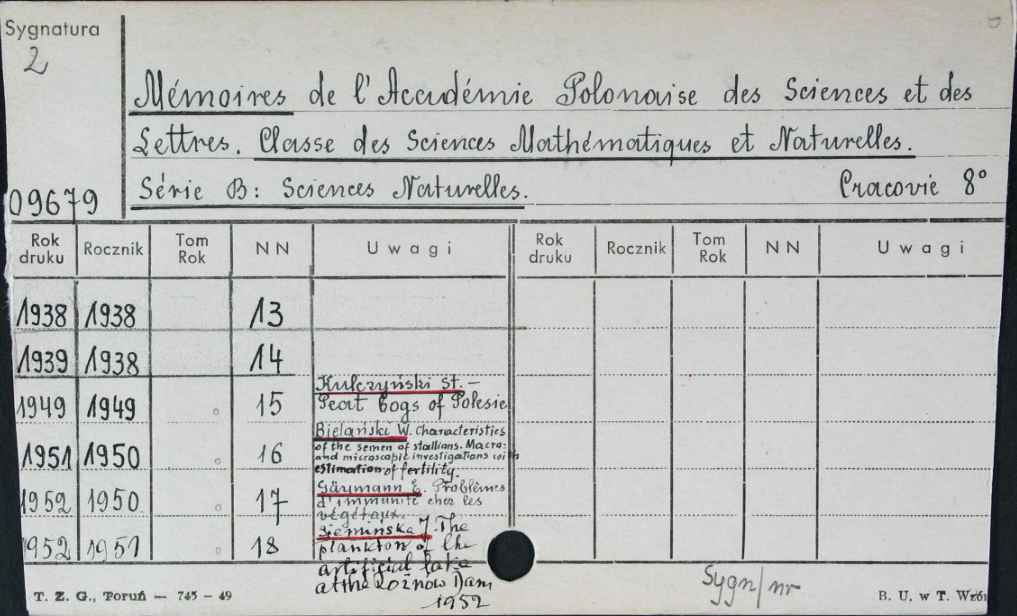 Sygnatura
2
Mémoires de l'Académie Polonaise des Sciences et des
Lettres. Classe des Sciences Mathématiques et Naturelles.
Série B: Sciences Naturelles. Cracovie 8°
09679
Rok druku Rocznik Tom Rok NN Uwagi Rok druku Rocznik Tom Rok NN Uwagi
1938 1938 13
1939 1938 14
1949 1949 15 Kulczyński St. –
Peat bogs of Polesie
1951 1950 16 Bielański W. Characteristics
of the semen of stallions. Macro-
and microscopic investigations with
estimation of fertility.
1952 1950 17 Gäumann E. Problèmes
d'immunité chez les
végétaux.
1952 1951 18 Siemińska J. The
plankton of the
artificial lake
at the Rożnów Dam
1952
Sygn/nr
T. Z. G., Toruń — 745 — 49 B. U. w T. Wzór